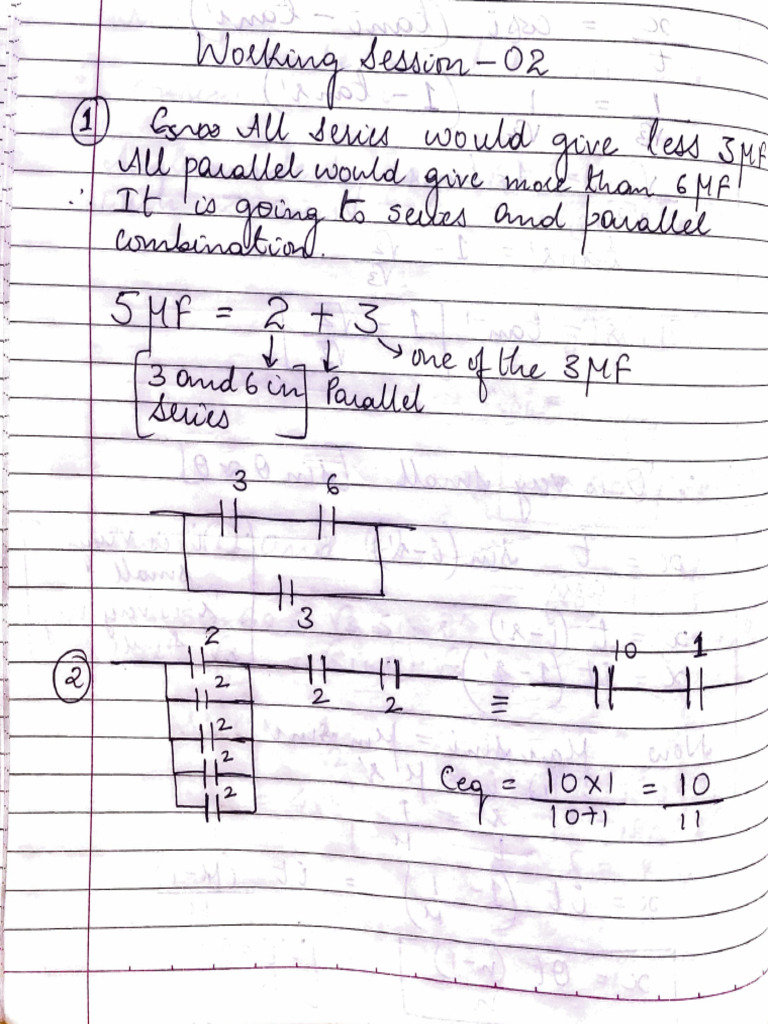 Working Session-02
① All series would give less 3μF
All parallel would give more than 6μF
∴ It is going to series and parallel
combination.
5μF = 2 + 3
↓ ↓ ↘ one of the 3μF
[3 and 6 in Parallel
series]
3 6
3
② 2 10 1
2 2 2 ≡
2
2
2 Ceq = 10×1 = 10
10+1 11